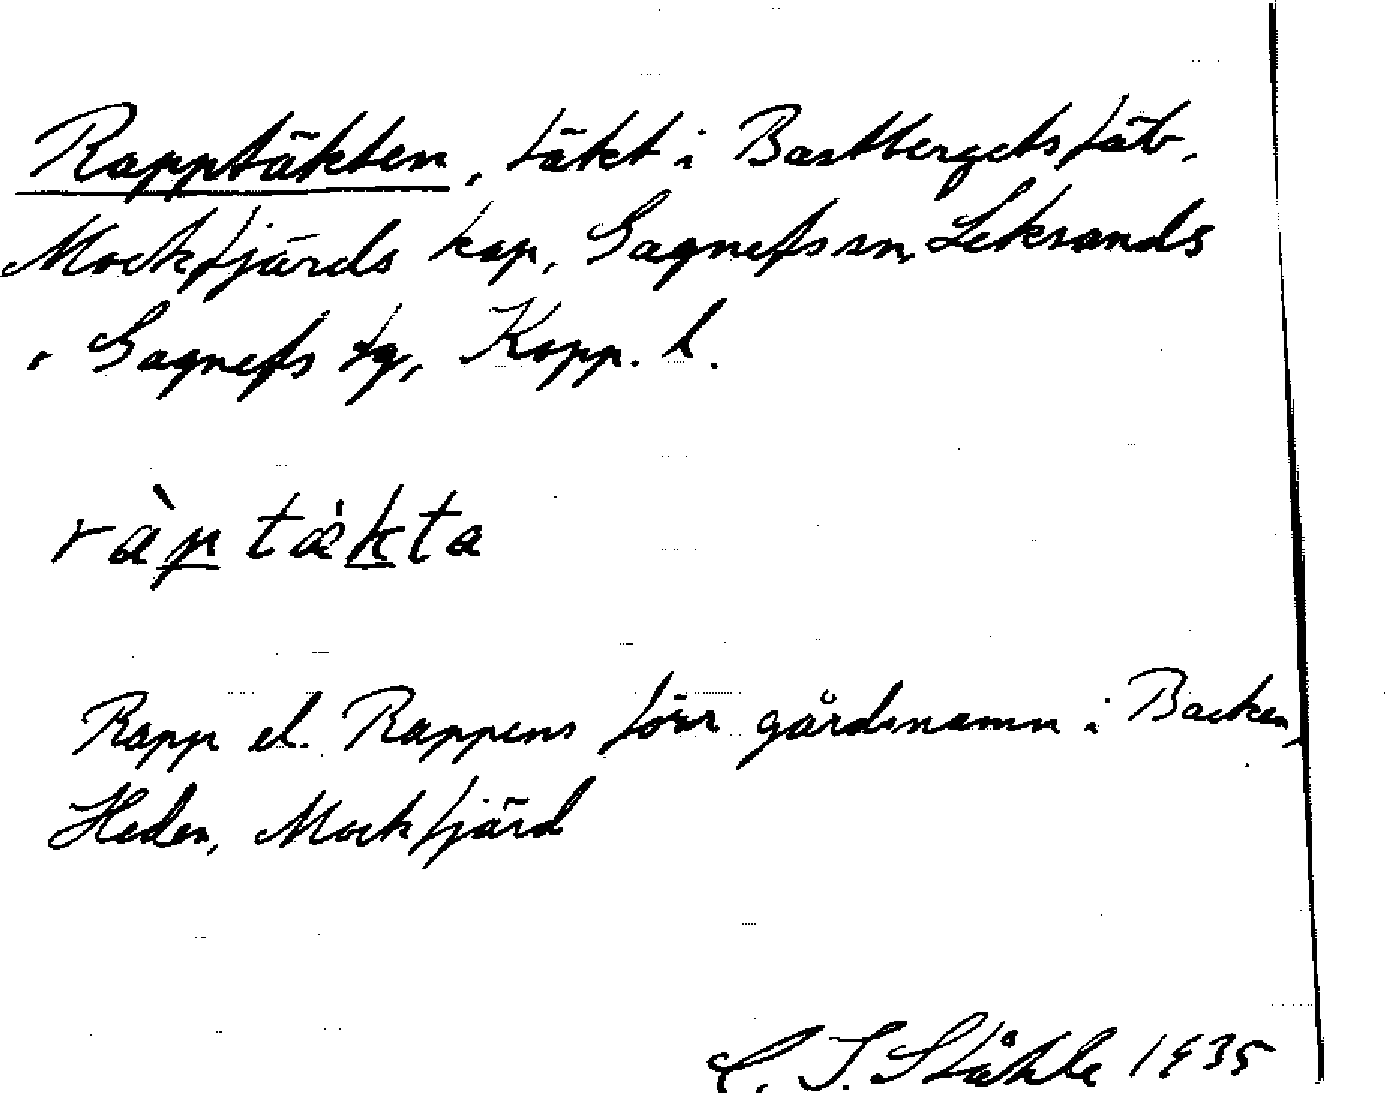 Rapptäkten, täkt i Bastbergets fäb.
Mockfjärds kap, Gagnefs sn, Leksands
o Gagnefs tg, Kopp. l.
ràp tǽkta
Rapp el. Rappens förr gårdsnamn i Backen,
Heden, Mockfjärd
C. I. Ståhle 1935